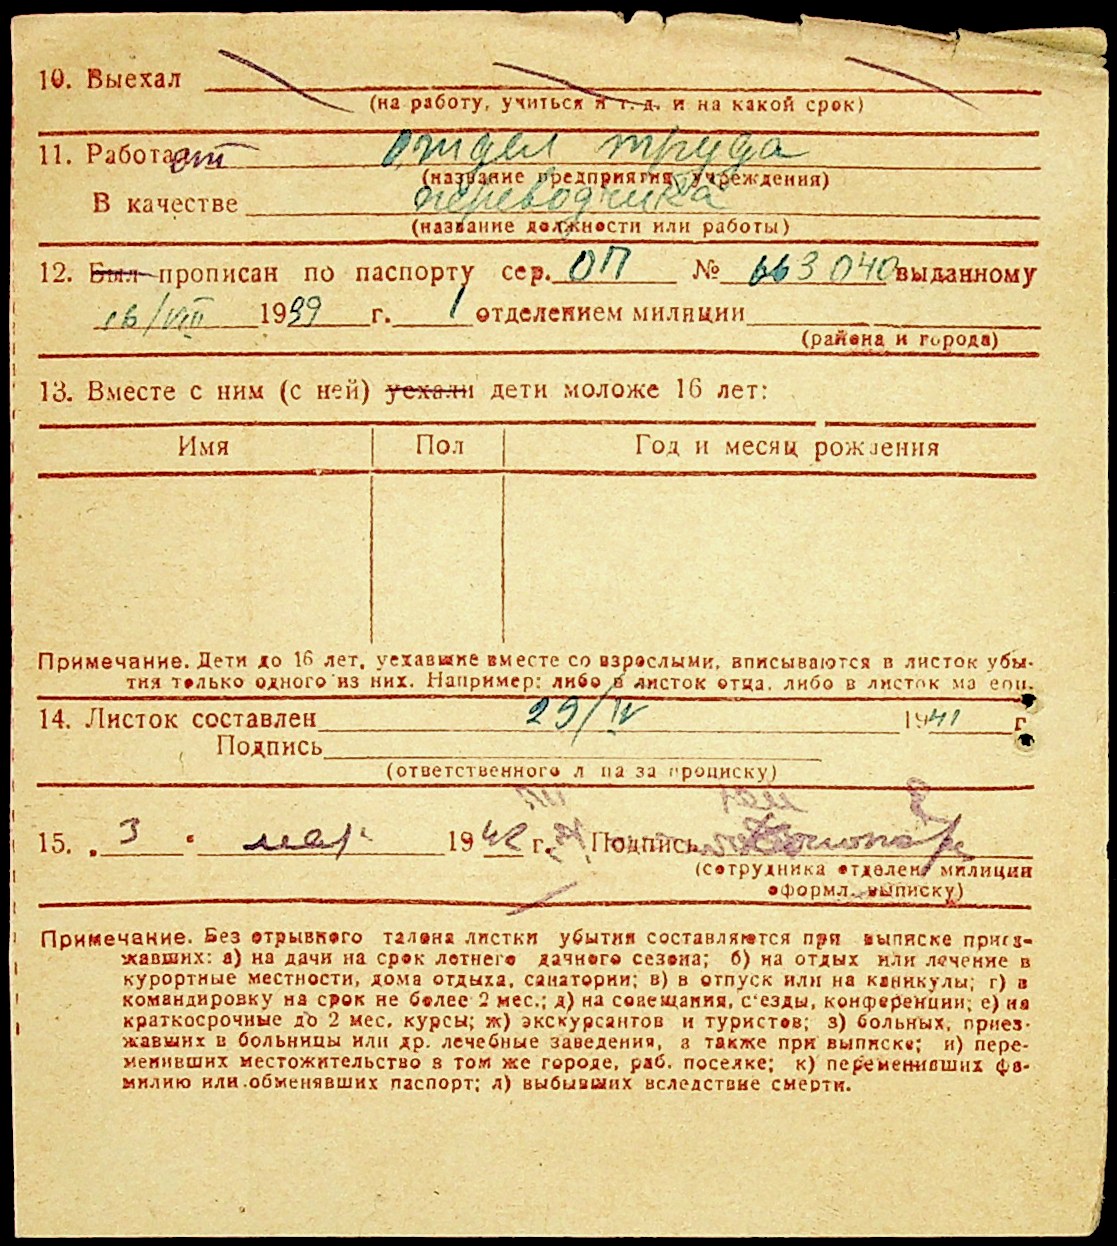 10. Выехал
(на работу, учиться и т. д. и на какой срок)
11. Работает отдел труда
(название предприятия, учреждения)
В качестве переводчика
(название должности или работы)
12. Был прописан по паспорту сер. ОП № 663040 выданному
16/VIII 1939 г. 1 отделением милиции
(района и города)
13. Вместе с ним (с ней) уехали дети моложе 16 лет:
Имя Пол Год и месяц рождения
Примечание. Дети до 16 лет, уехавшие вместе со взрослыми, вписываются в листок убы-
тия только одного из них. Например: либо в листок отца, либо в листок матери.
14. Листок составлен 29/IV 1941 г.
Подпись
(ответственного лица за прописку)
15. „3“ мар 1942 г. Подпись
(сотрудника отделен. милиции
оформл. выписку)
Примечание. Без отрывного талона листки убытия составляются при выписке приез-
жавших: а) на дачи на срок летнего дачного сезона; б) на отдых или лечение в
курортные местности, дома отдыха, санатории; в) в отпуск или на каникулы; г) в
командировку на срок не более 2 мес.; д) на совещания, с'езды, конференции; е) на
краткосрочные до 2 мес. курсы; ж) экскурсантов и туристов; з) больных, приез-
жавших в больницы или др. лечебные заведения, а также при выписке; и) пере-
менивших местожительство в том же городе, раб. поселке; к) переменивших фа-
милию или обменявших паспорт; л) выбывших вследствие смерти.